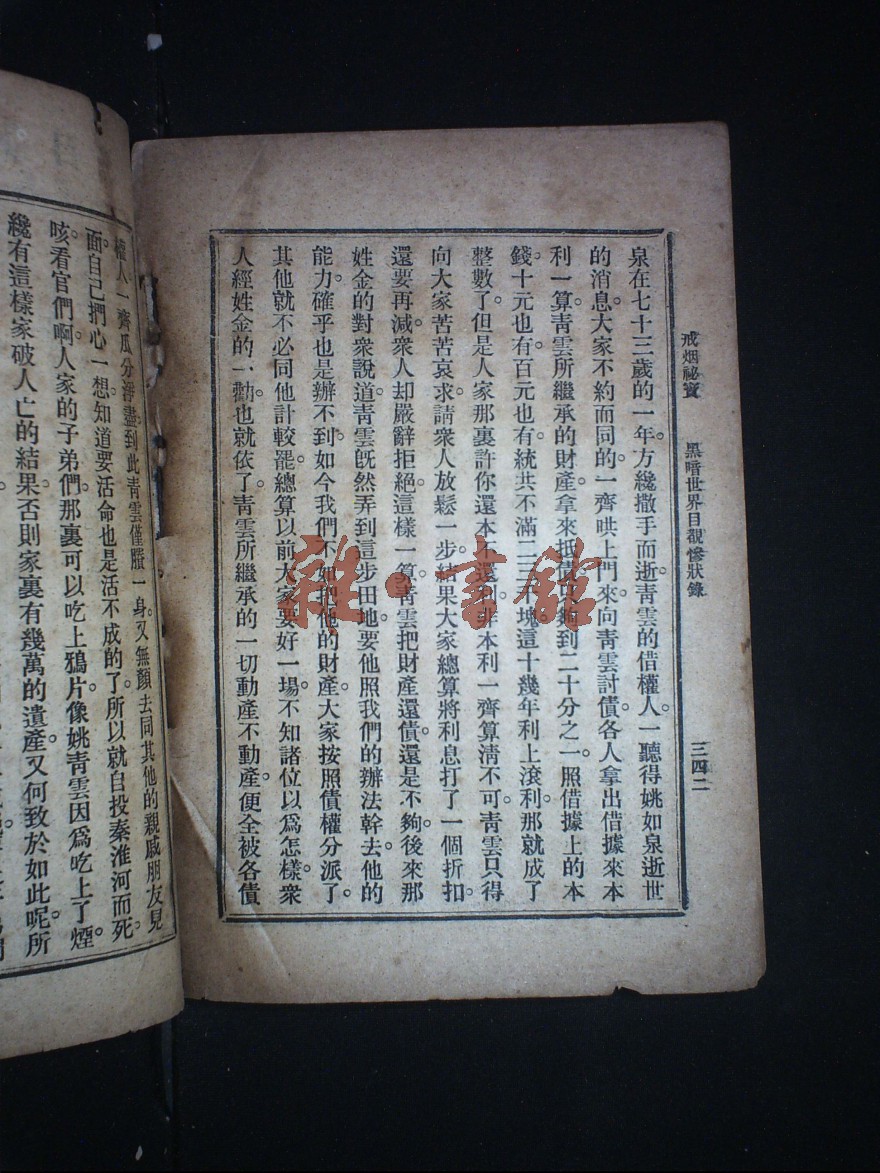 戒烟祕寶　黑暗世界目覩慘狀錄　三四二
泉在七十三歲的一年。方纔撒手而逝。靑雲的借權人。一聽得姚如泉逝世
的消息。大家不約而同的一齊哄上門來。向靑雲討債。各人拿出借據來。本
利一算。靑雲所繼承的財產。拿來抵債。只夠到二十分之一。照借據上的本
錢。十元也有。百元也有。統共不滿二三千塊。這十幾年利上滾利。那就成了
整數了。但是人家那裏許你還本不還利。非本利一齊算淸不可。靑雲只得
向大家苦苦哀求。請衆人放鬆一步。結果大家總算將利息打了一個折扣。
還要再減。衆人却嚴辭拒絕。這樣一算。靑雲把財產還債。還是不夠。後來那
姓金的對衆說道。靑雲旣然弄到這步田地。要他照我們的辦法幹去。他的
能力確乎也是辦不到。如今我們不如把他的財產。大家按照債權分派了。
其他就不必同他計較。罷總算以前大家要好一場。不知諸位以爲怎樣。衆
人經姓金的一勸。也就依了。靑雲所繼承的一切動產不動產。便全被各債
權人。一齊瓜分淨盡。到此靑雲僅賸一身。又無顏去同其他的親戚朋友見
面。自己捫心一想。知道要活命也是活不成的了。所以就自投秦淮河而死。
咳。看官們啊。人家的子弟們。那裏可以吃上鴉片。像姚靑雲因爲吃上了煙。
纔有這樣家破人亡的結果。否則家裏有幾萬的遺產。又何致於如此呢。所
雜·書館